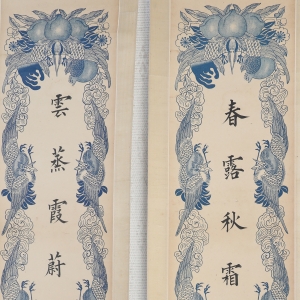 春露秋霜
雲蒸霞蔚